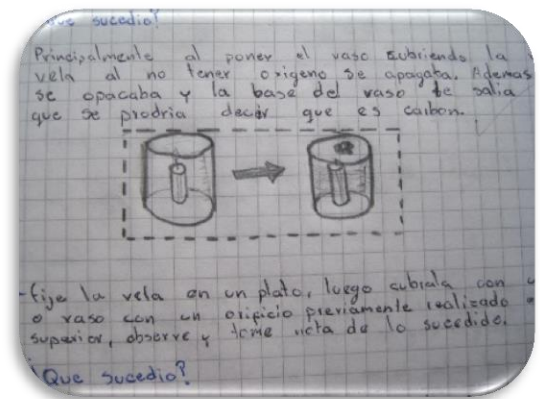 que sucedio?
Principalmente al poner el vaso cubriendo la
vela al no tener oxigeno se apagaba. Ademas
se opacaba y la base del vaso le salia
que se prodria decir que es carbon.
-fije la vela en un plato, luego cubrala con
o vaso con un orificio previamente realizado
superior, observe y tome nota de lo sucedido.
¿Que sucedio?